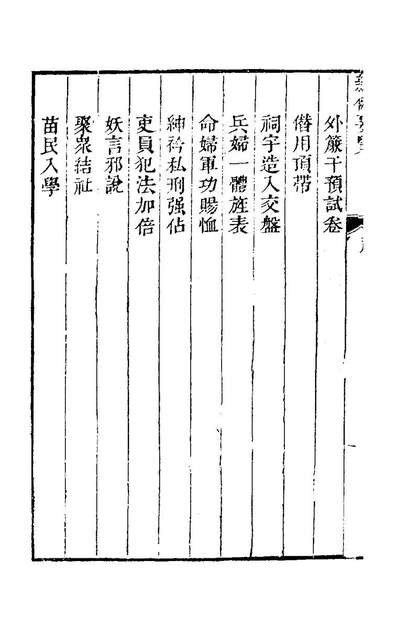 外簾干預試卷
僭用頂帶
祠宇造入交盤
兵婦一體旌表
命婦軍功賜恤
紳衿私刑强佔
吏員犯法加倍
妖言邪說
聚眾結社
苗民入學